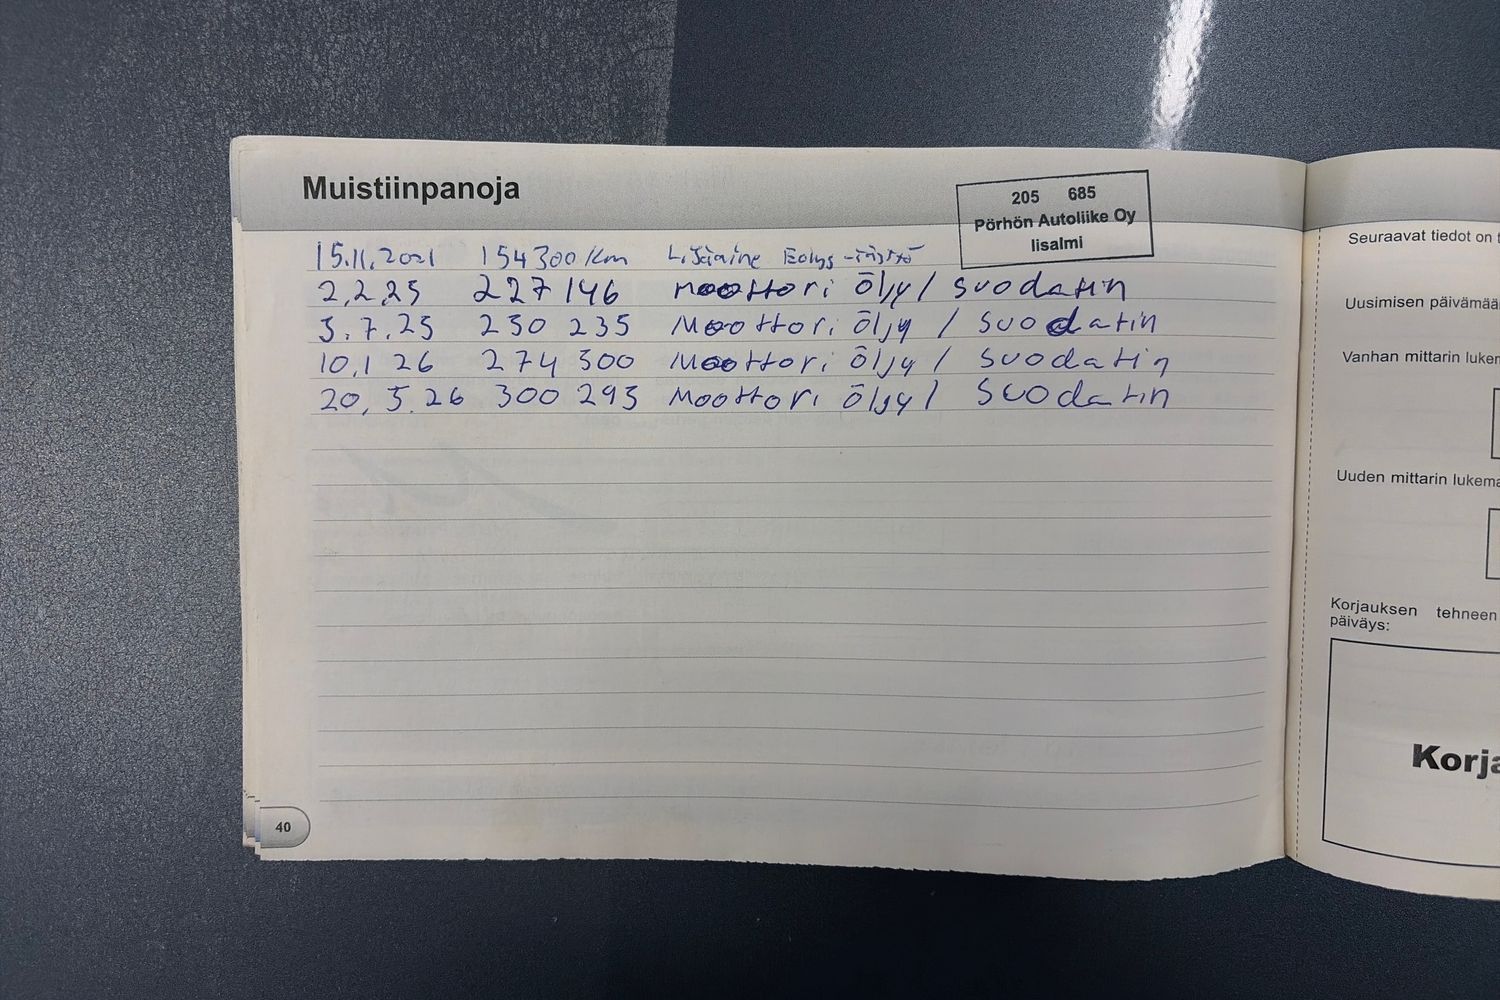 Muistiinpanoja
205 685
Pörhön Autoliike Oy
Iisalmi
15.11.2021 154300 km Lisäaine Eolys -täyttö
2.2.25 227 146 Moottori öljy / suodatin
3.7.25 250 235 Moottori öljy / suodatin
10.1 26 274 300 Moottori öljy / suodatin
20.5.26 300 293 Moottori öljy / suodatin
40
Seuraavat tiedot on t
Uusimisen päivämää
Vanhan mittarin luken
Uuden mittarin lukema
Korjauksen tehneen
päiväys:
Korja